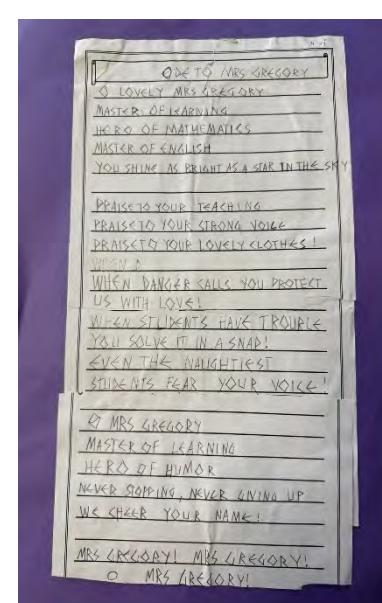 ODE TO MRS GREGORY
O LOVELY MRS GREGORY
MASTER OF LEARNING
HERO OF MATHEMATICS
MASTER OF ENGLISH
YOU SHINE AS BRIGHT AS A STAR IN THE SKY
PRAISE TO YOUR TEACHING
PRAISE TO YOUR STRONG VOICE
PRAISE TO YOUR LOVELY CLOTHES!
WHEN D
WHEN DANGER CALLS YOU PROTECT
US WITH LOVE!
WHEN STUDENTS HAVE TROUBLE
YOU SOLVE IT IN A SNAP!
EVEN THE NAUGHTIEST
STUDENTS FEAR YOUR VOICE!
O MRS GREGORY
MASTER OF LEARNING
HERO OF HUMOR
NEVER STOPPING, NEVER GIVING UP
WE CHEER YOUR NAME!
MRS GREGORY! MRS GREGORY!
O MRS GREGORY!